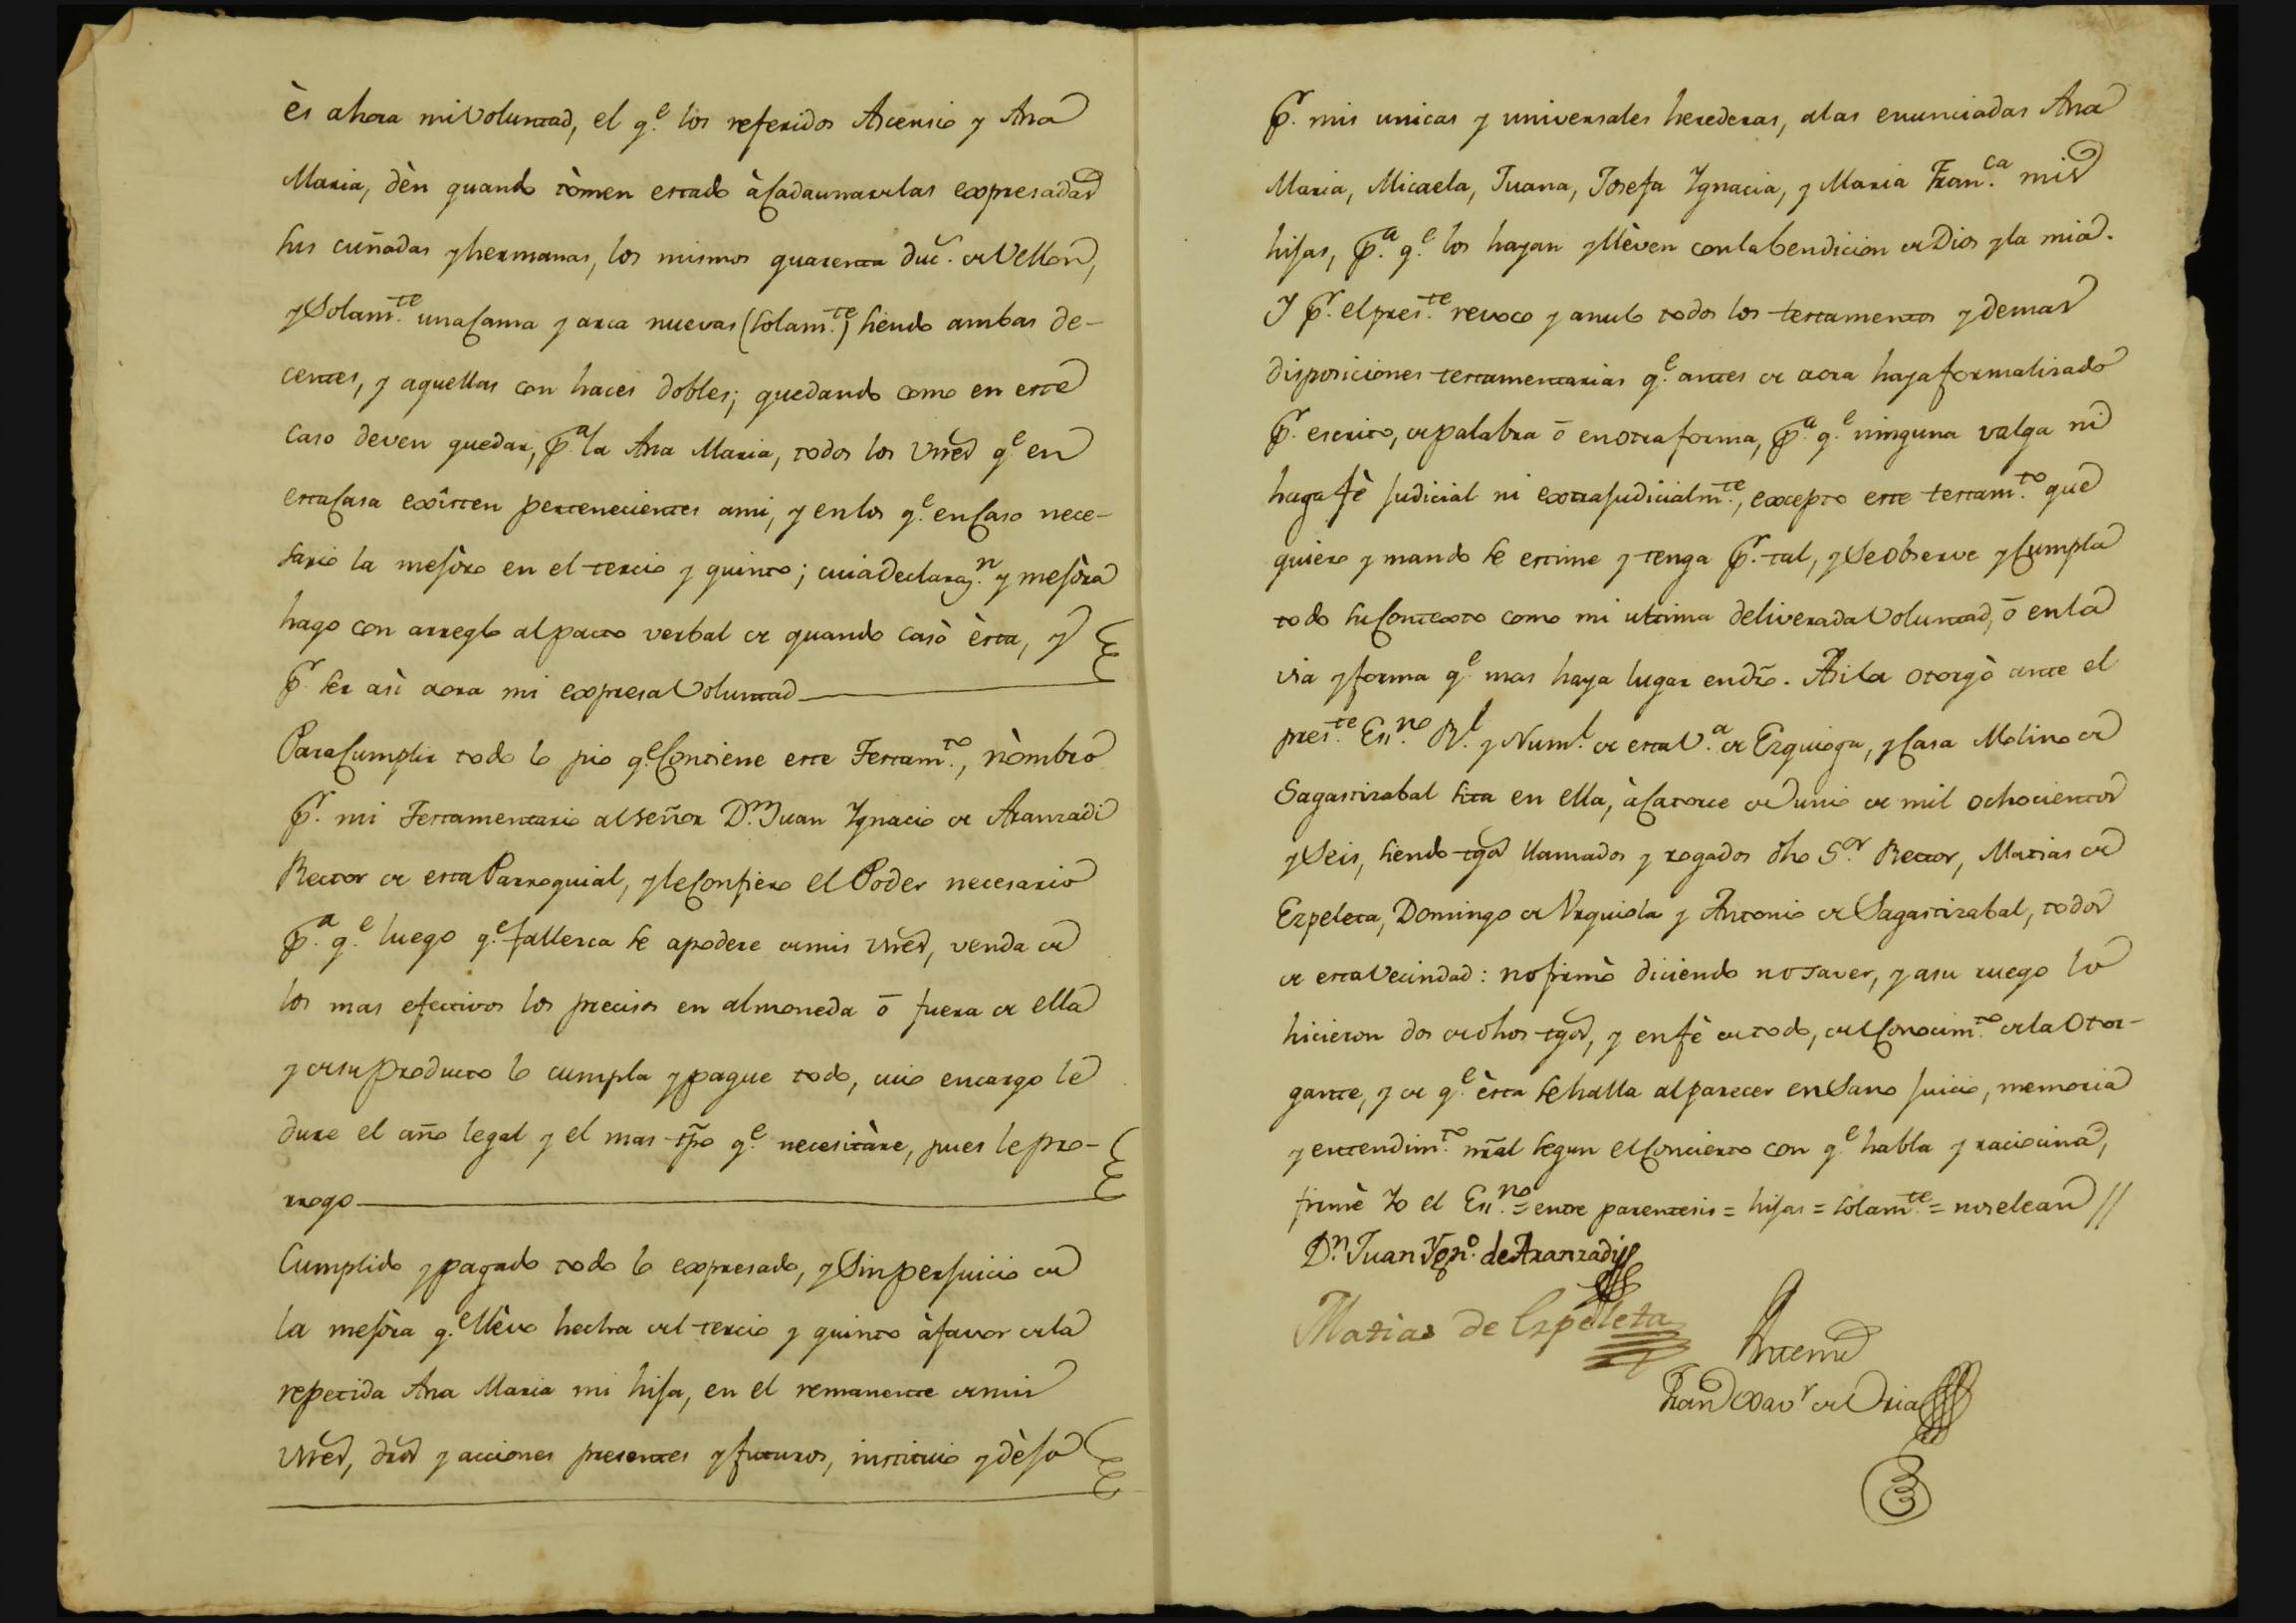 ès ahora mi Voluntad, el q.e los referidos Ascensio y Ana
Maria, dèn quando tòmen estado à Cada una de las expresadas
sus cuñadas y hermanas, los mismos quarenta duc.s de Vellon,
y Solam.te una Cama y arca nuevas (solam.te) siendo ambas de-
centes, y aquellas con haces dobles; quedando como en este
Caso deven quedar, p.a la Ana Maria, todos los vnes q.e en
esta Casa exîsten pertenecientes a mi, y en los q.e en Caso nece-
sario la mejòro en el tercio y quinto; cuia declaraz.n y mejòra
hago con arreglo al pacto verbal de quando casò èsta, y
p.r ser asi aora mi expresa Voluntad
Para Cumplir todo lo pio q.e Contiene este Testam.to, nòmbro
p.r mi Testamentario al señor D.n Juan Ygnacio de Aranzadi
Rector de esta Parroquial, y le Confiero el Poder necesario
p.a q.e luego q.e fallezca se apodere de mis vnes, venda de
los mas efectivos los precisos en almoneda ō fuera de ella
y de su Producto lo cumpla y pague todo, cuio encargo le
dure el año legal y el mas tp̃o q.e necesitàre, pues le pro-
rrogo
Cumplido y pagado todo lo expresado, y Sin perjuicio de
la mejòra q.e llèvo hecha del tercio y quinto à favor de la
repetida Ana Maria mi hija, en el remanente de mis
vnes, dros y acciones presentes y futuros, instituio y dèjo
p.r mis unicas y universales herederas, a las enunciadas Ana
Maria, Micaela, Juana, Josefa Ygnacia, y Maria Fran.ca mis
hijas, p.a q.e los hayan y llèven con la bendicion de Dios y la mia.
Y p.r el pres.te revoco y anulo todos los testamentos y demas
disposiciones testamentarias q.e antes de aora haya formalizado
p.r escrito, de palabra ō en otra forma, p.a q.e ninguna valga ni
haga fè judicial ni extrajudicialm.te, excepto este testam.to que
quiero y mando se estime y tenga p.r tal, y Se Observe y Cumpla
todo su Contexto como mi ultima deliverada Voluntad, ō en la
via y forma q.e mas haya lugar en dr̃o. Asi la otorgò ante el
pres.te Ess.no R.l y Num.l de esta V.a de Ezquioga, y Casa Molino de
Sagastizabal sita en ella, à Catorce de Junio de mil ochocientos
y Seis, siendo tgos llamados y rogados dho S.or Rector, Matias de
Ezpeleta, Domingo de Urquiola y Antonio de Sagastizabal, todos
de esta Vecindad: no firmò diciendo no saver, y a su ruego lo
hicieron dos de dhos tgos, y en fè de todo, del Conocim.to de la Otor-
gante, y de q.e èsta se halla al parecer en Sano juicio, memoria
y entendim.to nr̃al segun el Concierto con q.e habla y raciocina,
firmè Yo el Ess.no = entre parentesis = hijas = solam.te = no se lean //
D.n Juan Ygn.o de Aranzadi
Matias de Ezpeleta
Ante mi
Fran.co Xav.r de Oria